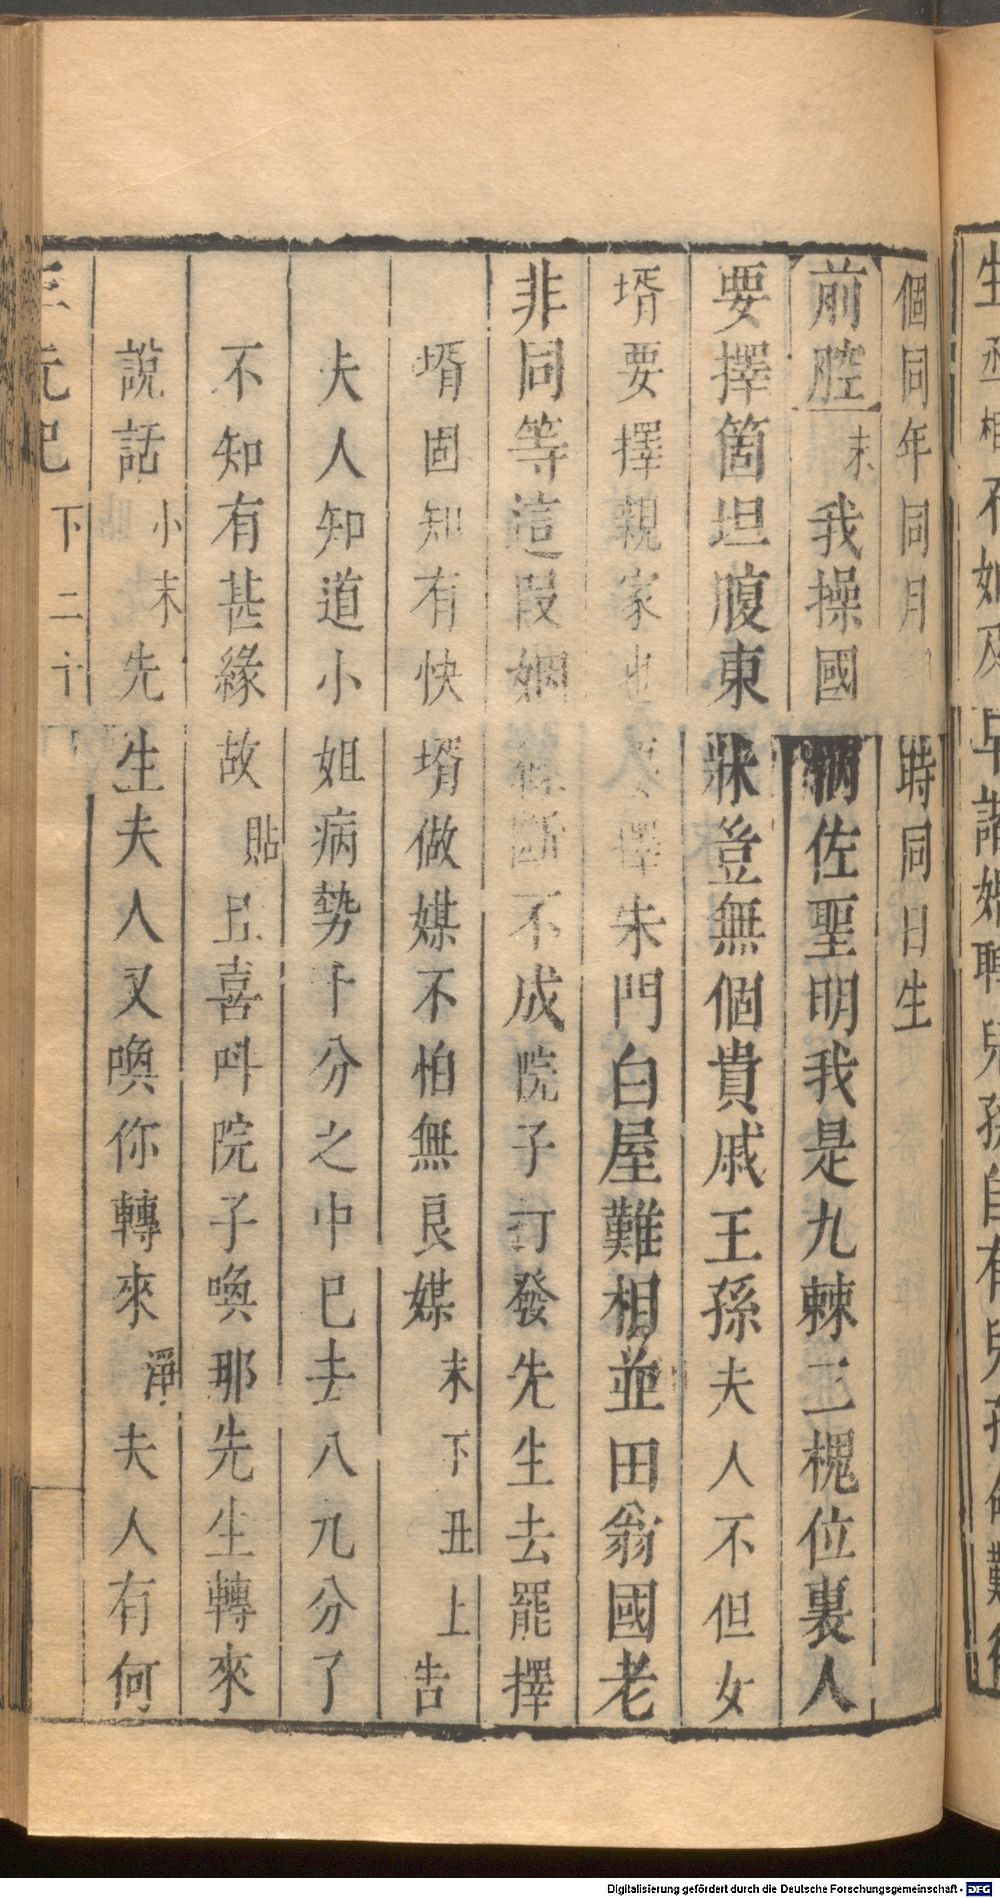 個同年同月時同日生
前腔末我操國柄佐聖明我是九棘三槐位裏人
要擇箇坦腹東牀豈無個貴戚王孫夫人不但女
壻要擇親家也擇朱門白屋難相並田翁國老
非同等這段姻斷不成院子打發先生去罷擇
壻固知有快壻做媒不怕無良媒末下丑上告
夫人知道小姐病勢十分之中已去八九分了
不知有甚緣故貼丑喜叫院子喚那先生轉來
說話小末先生夫人又喚你轉來淨夫人有何
三元記 下 二十
Digitalisierung gefördert durch die Deutsche Forschungsgemeinschaft - DFG